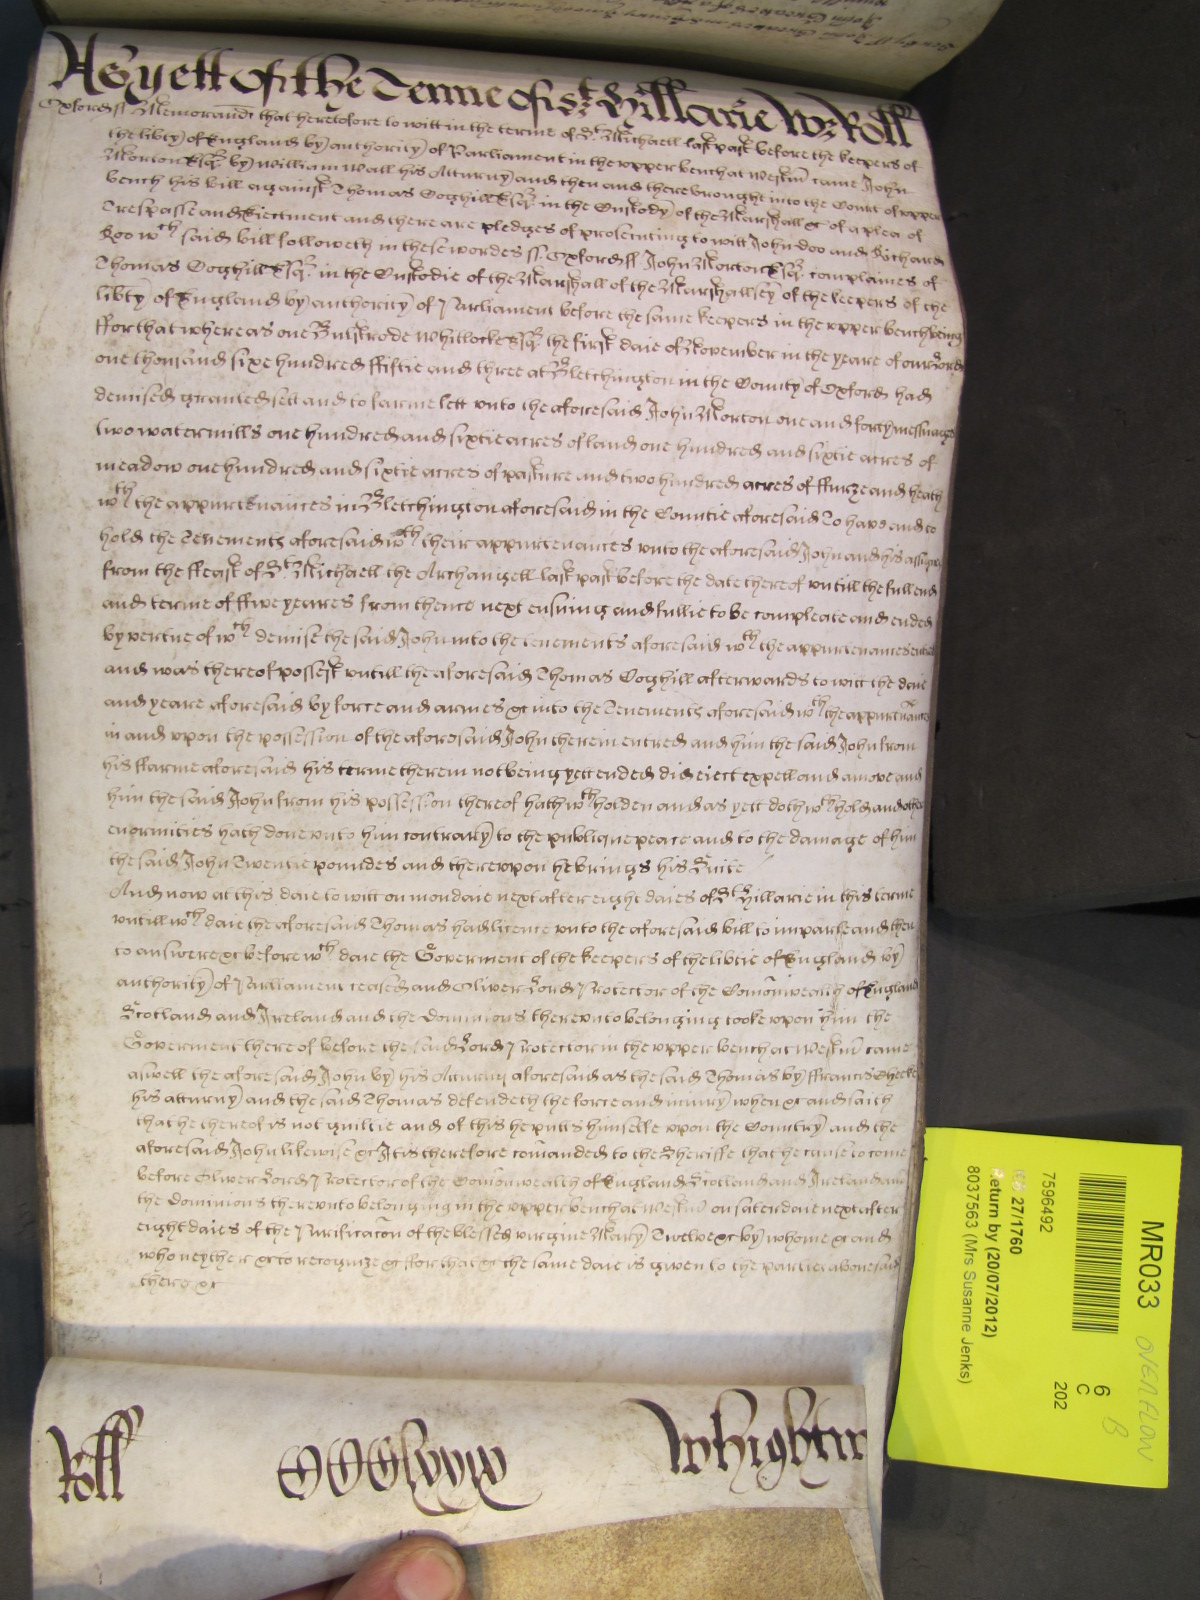 As yett of the Terme of st Hillarie Wz Roll
Oxford ss Memorand that heretofore to witt in the terme of St Michaell last past before the keepers of
the libty of England by authority of Parliament in the upper bench at Westm came John
Morton Esqr by William Wall his Atturny and then and there brought into the Court of upper
bench his bill against Thomas Coghill Esqr in the Custody of the Marshall &c of a plea of
Trespasse and Ejectment and there are pledges of prosecuting to witt John doo and Richard
Roo wch said bill followeth in these wordes ss Oxford ss John Morton Esqr complaines of
Thomas Coghill Esqr in the Custodie of the Marshall of the Marshallsey of the keepers of the
libty of England by authority of Parliament before the same keepers in the upper bench being
ffor that whereas one Bulstrode Whitlocke Esqr the first daie of November in the yeare of our Lord
one thousand sixe hundred ffiftie and three at Bletchington in the County of Oxford had
demised granted sett and to farme lett unto the aforesaid John Morton one and forty messuages
two watermills one hundred and sixtie acres of land one hundred and sixtie acres of
meadow one hundred and sixtie acres of pasture and two hundred acres of ffurze and heath
wth the appurtenaunces in Bletchington aforesaid in the Countie aforesaid To have and to
hold the Tenements aforesaid wth their appurtenaunces unto the aforesaid John and his assignes
from the ffeast of St Michaell the Archangell last past before the date thereof untill the full end
and terme of ffive yeares from thence next ensuing and fullie to be compleate and ended
by vertue of wch demise the said John into the tenements aforesaid wth the appurtenances entred
and was thereof possest untill the aforesaid Thomas Coghill afterwards to witt the daie
and yeare aforesaid by force and armes &c into the Tenements aforesaid wth the appurtenances
in and upon the possession of the aforesaid John therein entred and him the said John from
his ffarme aforesaid his terme therein not being yett ended did eject expell and amove and
him the said John from his possession thereof hath wthholden and as yett doth wthhold and other
enormities hath done unto him contrary to the publique peace and to the damage of him
the said John Twentie poundes and thereupon he brings his Suite
And now at this daie to witt on mondaie next after eight daies of St Hillarie in this terme
untill wch daie the aforesaid Thomas had licence unto the aforesaid bill to imparle and then
to answere &c before wch daie the Goverment of the keepers of the libtie of England by
authority of Parliament ceased and Oliver Lord Protector of the Comonwealth of England
Scotland and Ireland and the dominions thereunto belonging tooke upon him the
Goverment thereof before the said Lord Protector in the upper bench at Westm came
aswell the aforesaid John by his Atturny aforesaid as the said Thomas by ffrancis Cheeke
his atturny and the said Thomas defendeth the force and injury when &c and saith
that he thereof is not guiltie and of this he putts himselfe upon the Country and the
aforesaid John likewise &c It is therefore comanded to the Sheriffe that he cause to come
before Oliver Lord Protector of the Comonwealth of England Scotland and Ireland and
the dominions thereunto belonging in the upper bench at Westm on saterdaie next after
eight daies of the Purificacon of the blessed virgine Mary Twelve &c by whome &c and
who neyther &c to recognize &c ffor that &c the same daie is given to the parties abovesaid
there &c
Roll
Whightw
MR033 OVERFLOW
6 B
C
202
7596492
27/1760
Return by (20/07/2012)
8037563 (Mrs Susanne Jenks)